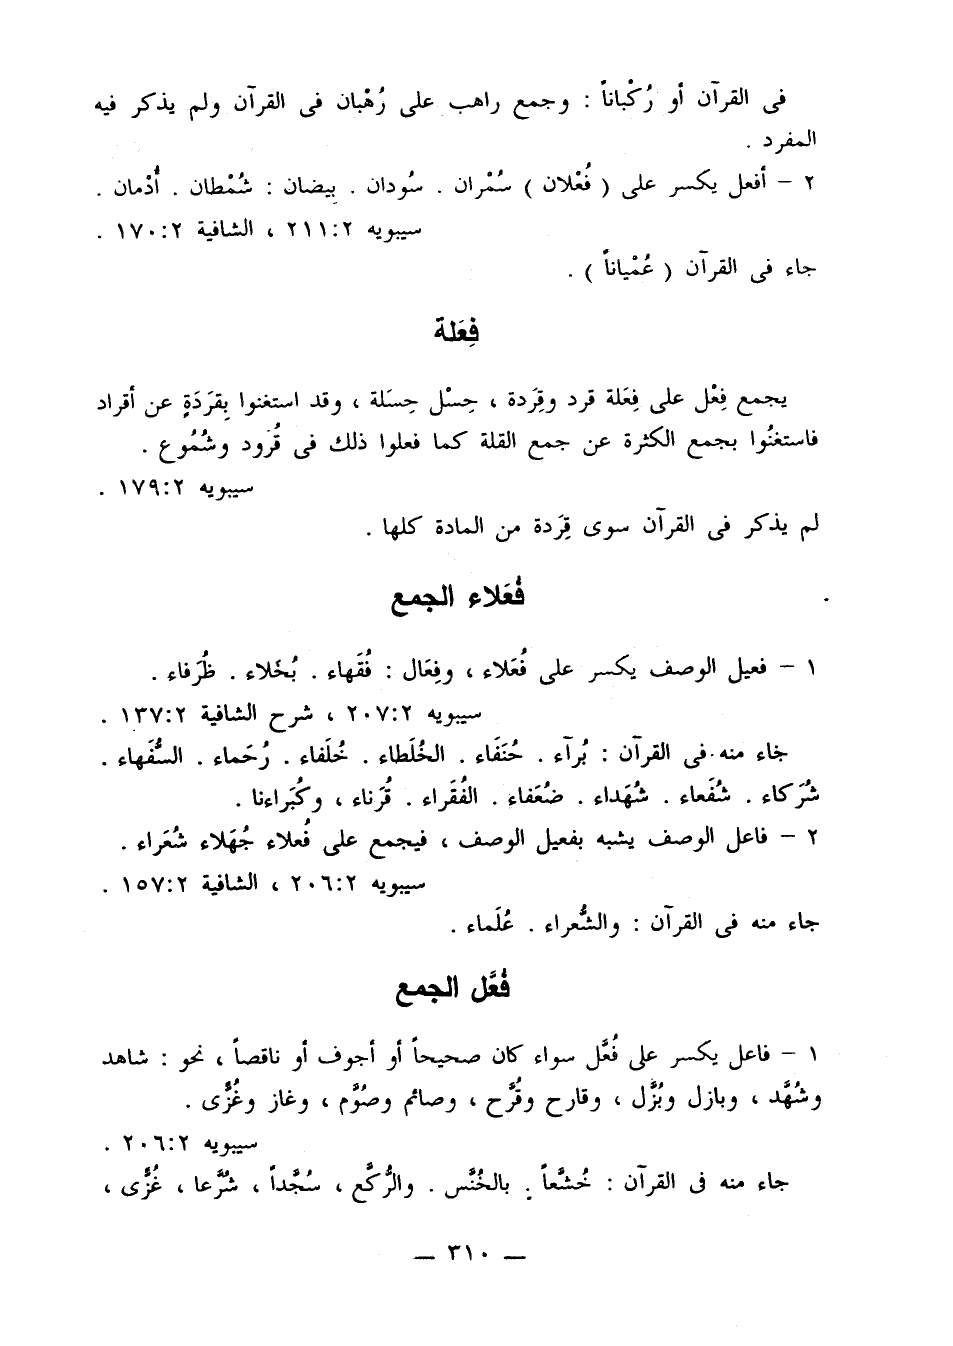 فى القرآن أو رُكْباناً : وجمع راهب على رُهْبان فى القرآن ولم يذكر فيه
المفرد .
٢ – أفعل يكسر على ( فُعْلان ) سُمْران . سُودان . بِيضان : شُمْطان . أُدْمان .
سيبويه ٢:٢١١ ، الشافية ٢:١٧٠ .
جاء فى القرآن ( عُمْياناً ) .
فِعَلة
يجمع فِعْل على فِعَلة قرد وقِرَدة ، حِسْل حِسَلة ، وقد استغنوا بِقرَدَةٍ عن أقراد
فاستغنُوا بجمع الكثرة عن جمع القلة كما فعلوا ذلك فى قُرود وشُمُوع .
سيبويه ٢:١٧٩ .
لم يذكر فى القرآن سوى قِرَدة من المادة كلها .
فُعَلاء الجمع
١ – فعيل الوصف يكسر على فُعَلاء ، وفِعَال : فُقَهاء . بُخَلاء . ظُرَفاء .
سيبويه ٢:٢٠٧ ، شرح الشافية ٢:١٣٧ .
جاء منه فى القرآن : بُرآء . حُنَفَاء . الخُلَطاء . خُلَفاء . رُحَماء . السُّفَهاء .
شُرَكاء . شُفَعاء . شُهَداء . ضُعَفاء . الفُقَراء . قُرَناء ، وكُبَراءنا .
٢ – فاعل الوصف يشبه بفعيل الوصف ، فيجمع على فُعلاء جُهَلاء شُعَراء .
سيبويه ٢:٢٠٦ ، الشافية ٢:١٥٧ .
جاء منه فى القرآن : والشُّعراء . عُلَماء .
فُعَّل الجمع
١ – فاعل يكسر على فُعَّل سواء كان صحيحاً أو أجوف أو ناقصاً ، نحو : شاهد
وشُهَّد ، وبازل وبُزَّل ، وقارح وقُرَّح ، وصائم وصُوَّم ، وغاز وغُزَّى .
سيبويه ٢:٢٠٦ .
جاء منه فى القرآن : خُشَّعاً . بالخُنَّس . والرُّكَّع ، سُجَّداً ، شُرَّعا ، غُزَّى ،
— ٣١٠ —